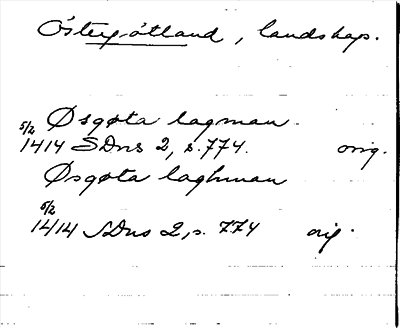 Östergötland, landskap.
Øsgøta lagman.
5/2
1414 SDns 2, s. 774. orig.
Øsgøta laghman
5/2
1414 SDns 2, s. 774 orig.